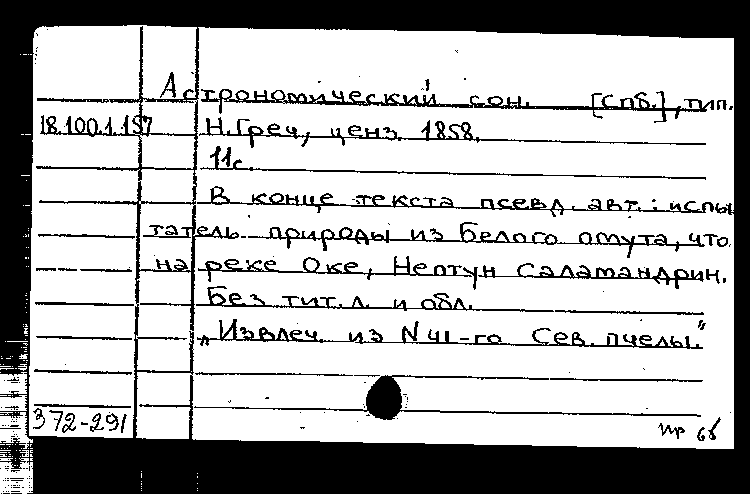 Астрономический сон. [Спб.], тип.
18.100.1.157 Н. Греч, ценз. 1858.
11с.
В конце текста псевд. авт.: испы
татель природы из Белого омута, что
на реке Оке, Нептун Саламандрин.
Без тит. л. и обл.
„Извлеч. из N 41-го Сев. пчелы."
372-291
пр 68